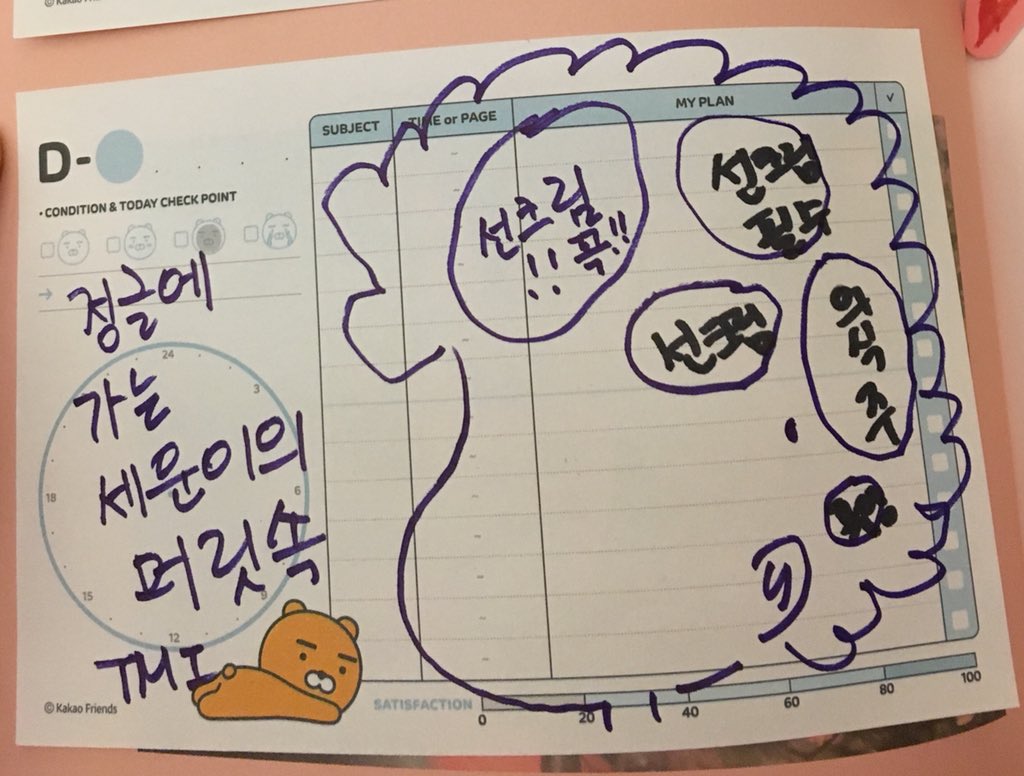 © Kakao Friends
D-
SUBJECT
TIME or PAGE
MY PLAN
V
• CONDITION & TODAY CHECK POINT
→
정글에
가는
세운이의
머릿속
TMI
24
3
6
9
12
15
18
선크림
!! 푹!!
선크림
필수
선크림
의식주
© Kakao Friends
SATISFACTION
0
20
40
60
80
100